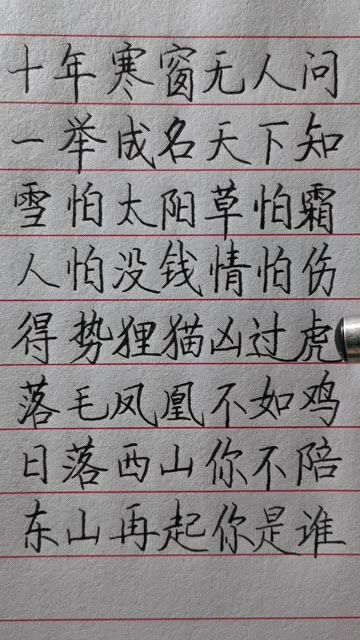 十年寒窗无人问
一举成名天下知
雪怕太阳草怕霜
人怕没钱情怕伤
得势狸猫凶过虎
落毛凤凰不如鸡
日落西山你不陪
东山再起你是谁